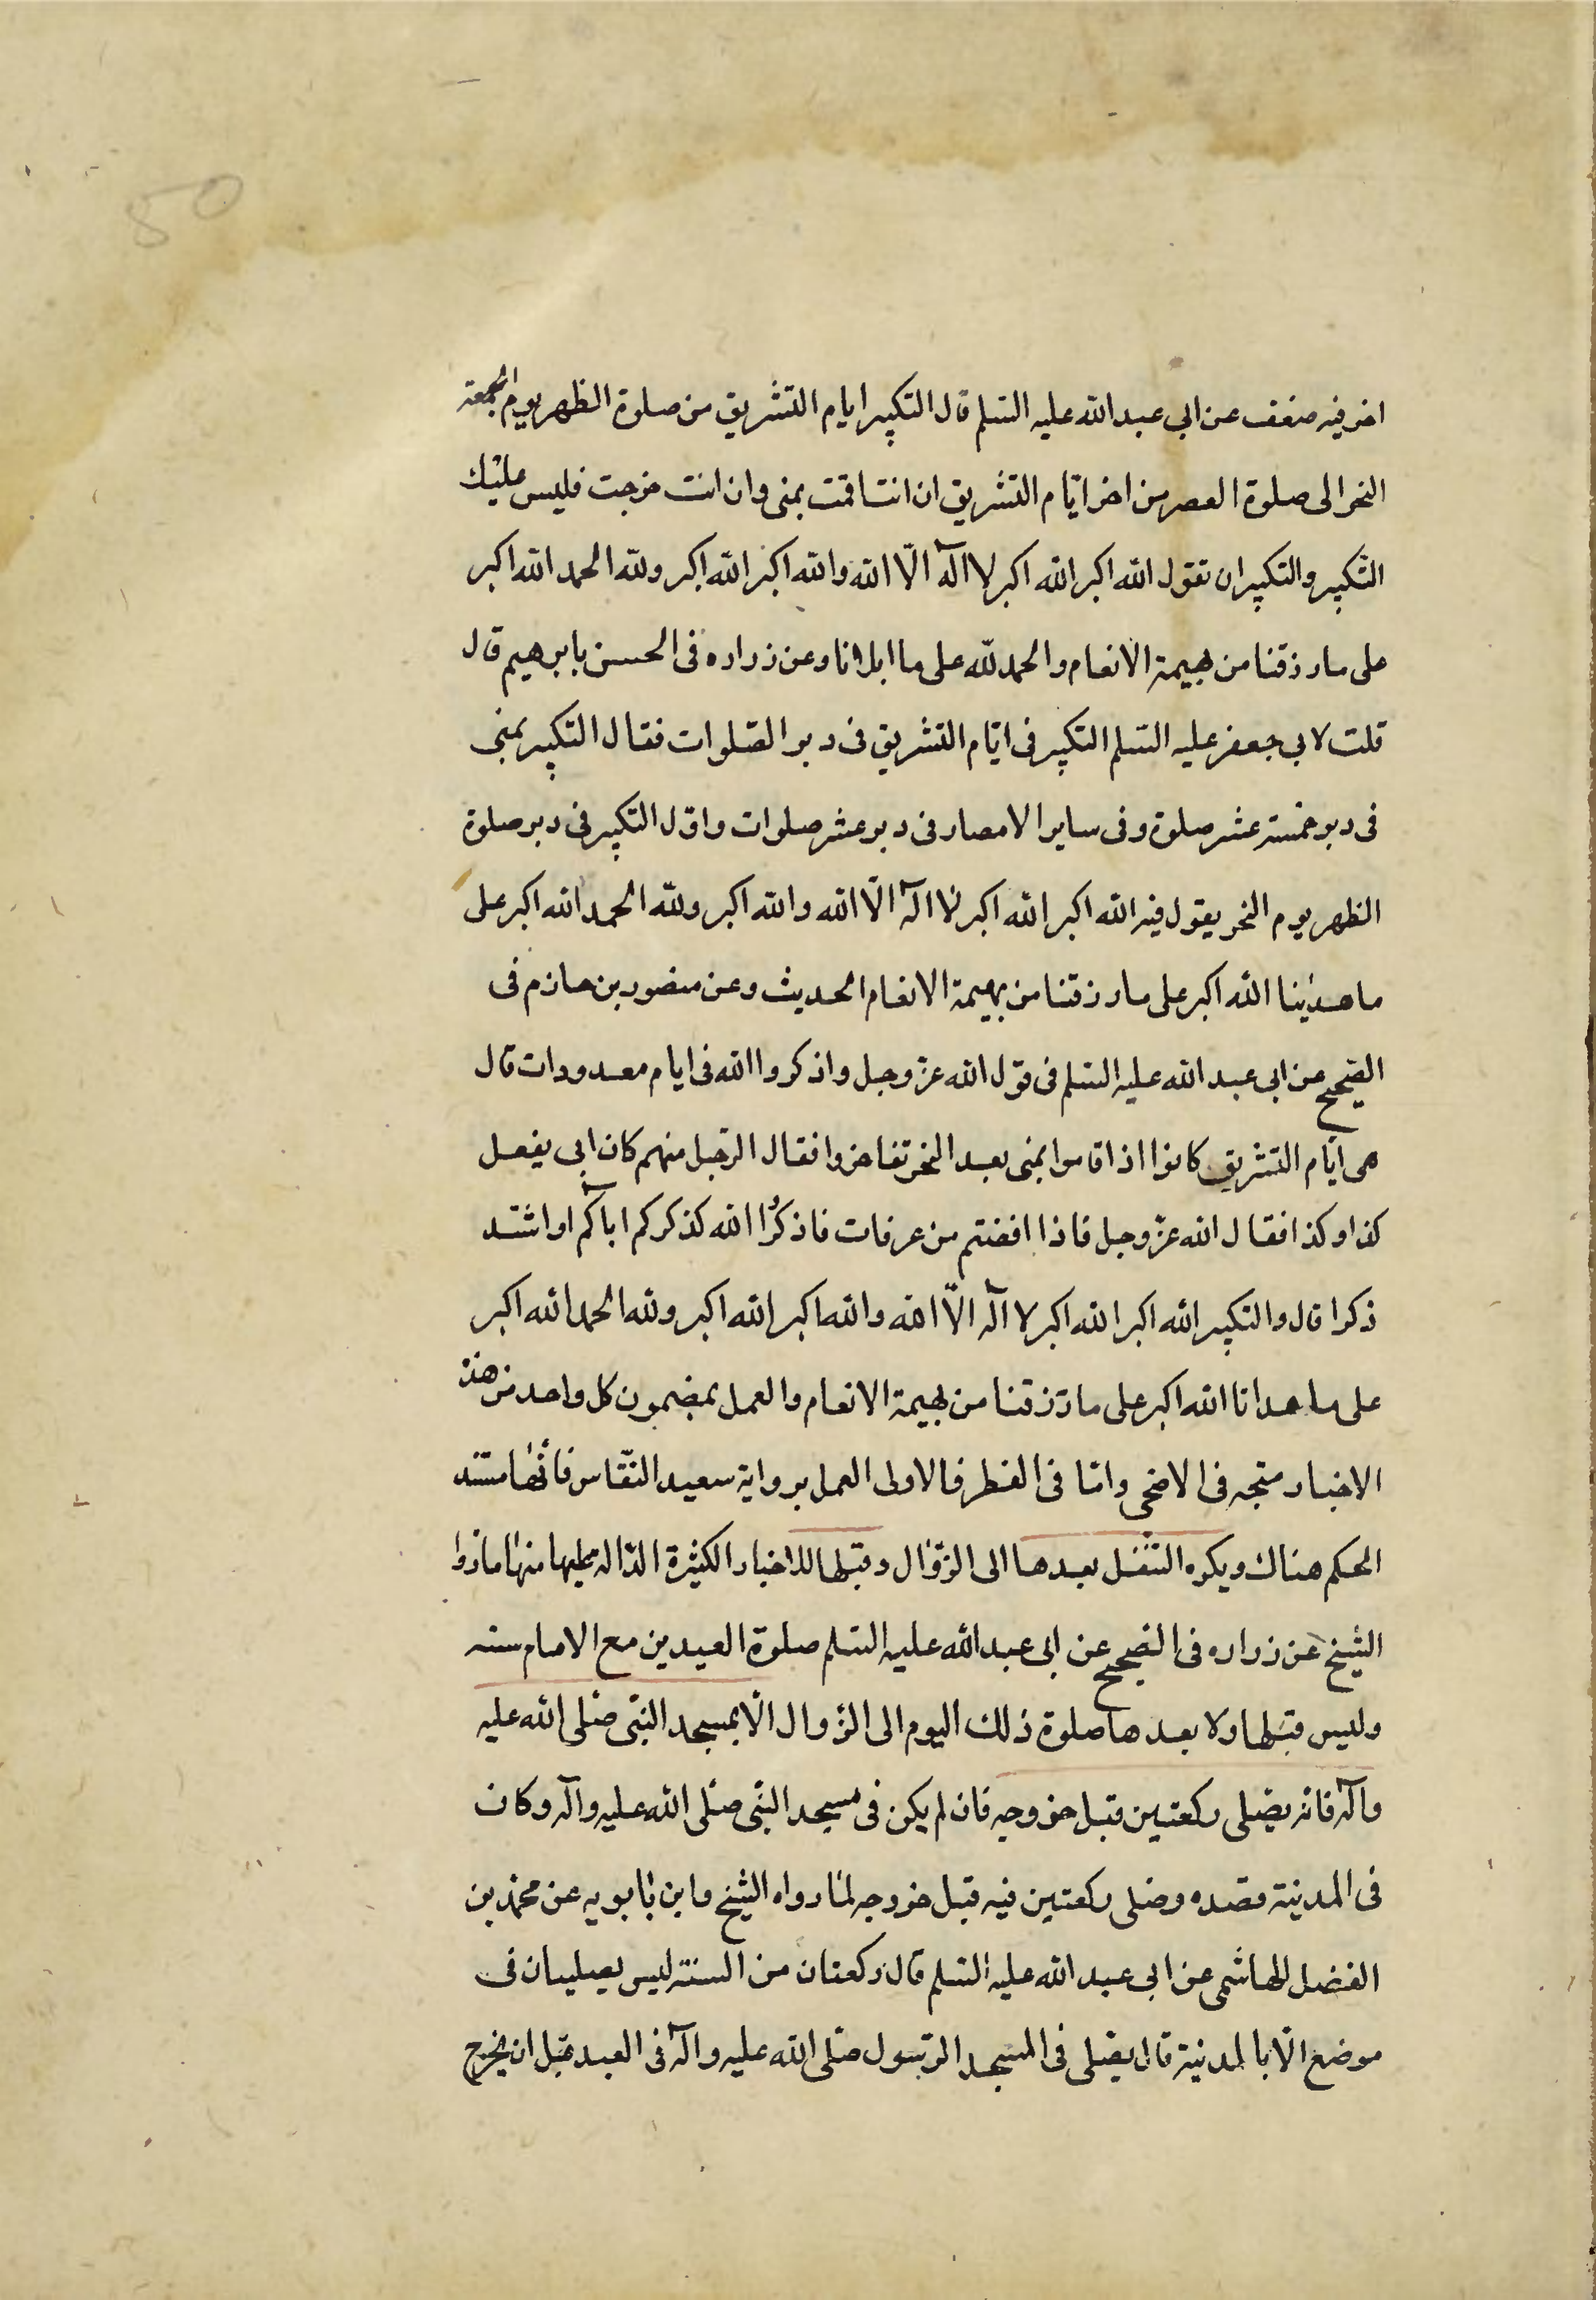 50
اخر فيه ضعف عن ابي عبد الله عليه السّلم قال التكبير ايام التشريق من صلوة الظهر يوم الجمعة
النحر الى صلوة العصر من اخر ايّام التشريق ان انت اقمت بمنى وان انت خرجت فليس عليك
التّكبير والتكبير ان تقول الله اكبر الله اكبر لا اله الّا الله والله اكبر الله اكبر ولله الحمد الله اكبر
على ما رزقنا من بهيمة الانعام والحمد لله على ما ابلانا وعن زراره فى الحسن بابرهيم قال
قلت لابي جعفر عليه السّلم التكبير فى ايّام التشريق فى دبر الصّلوات فقال التكبير بمنى
فى دبر خمسة عشر صلوة وفى ساير الامصار فى دبر عشر صلوات واوّل التكبير فى دبر صلوة
الظهر يوم النحر يقول فيه الله اكبر الله اكبر لا اله الّا الله والله اكبر ولله الحمد الله اكبر على
ما هدينا الله اكبر على ما رزقنا من بهيمة الانعام الحديث وعن منصور بن حازم فى
الصّحيح عن ابى عبد الله عليه السّلم فى قول الله عزّ وجل واذكروا الله فى ايام معدودات قال
هى ايّام التشريق كانوا اذا قاموا بمنى بعد النحر تفاخروا فقال الرّجل منهم كان ابى يفعل
كذا وكذا فقال الله عزّ وجل فاذا افضتم من عرفات فاذكرُوا الله كذكركم اباكم او اشدّ
ذكرا قال والتكبير الله اكبر الله اكبر لا اله الّا الله والله اكبر الله اكبر ولله الحمد الله اكبر
على ما هدانا الله اكبر على ما رزقنا من بهيمة الانعام والعمل بمضمون كل واحد من هذه
الاخبار متجه فى الاضحى وامّا فى الفطر فالاولى العمل برواية سعيد النقّاس فانّها مستند
الحكم هناك ويكره التنفّل بعدها الى الزّوال وقبلها للاخبار الكثيرة الدّالة عليها منها ما رواه
الشيخ عن زراره فى الصّحيح عن ابى عبد الله عليه السّلم صلوة العيدين مع الامام سنه
وليس قبلها ولا بعدها صلوة ذلك اليوم الى الزّوال الّا بمسجد النبّى صلّى الله عليه
وآله فانه يصّلى ركعتين قبل خروجه فان لم يكن فى مسجد النبّى صلّى الله عليه وآله وكان
فى المدينة قصده وصلى ركعتين فيه قبل خروجه لما رواه الشيخ وابن بابويه عن محمّد بن
الفضل الهاشمى عن ابى عبد الله عليه السّلم قال ركعتان من السنة ليس يصليان فى
موضع الّا بالمدنية قال يصّلى فى المسجد الرّسول صلّى الله عليه وآله فى العيد قبل ان يخرج